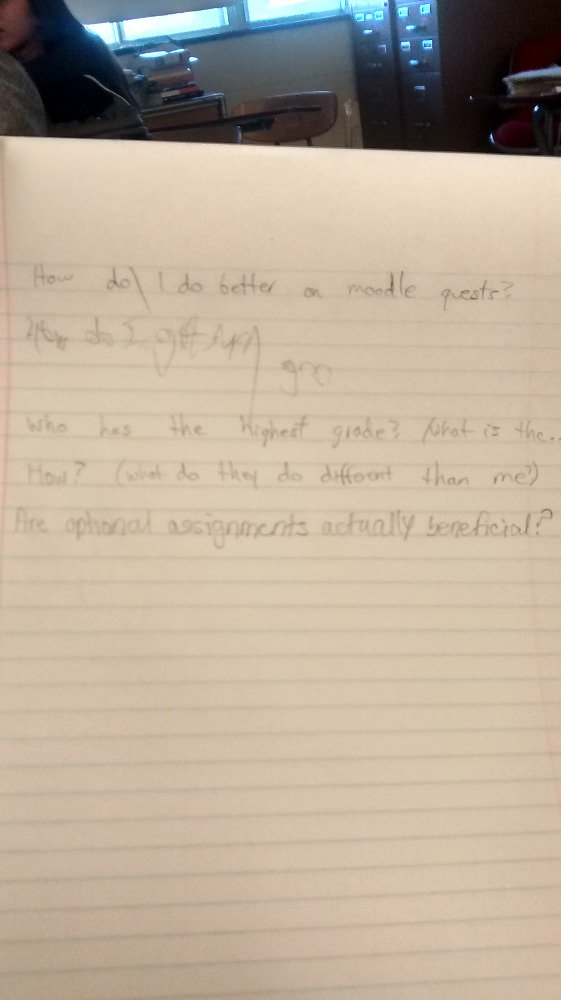 How do I do better on moodle quests?
How do I get
gro
Who has the highest grade? What is the..
How? (what do they do different than me?)
Are optional assignments actually beneficial?